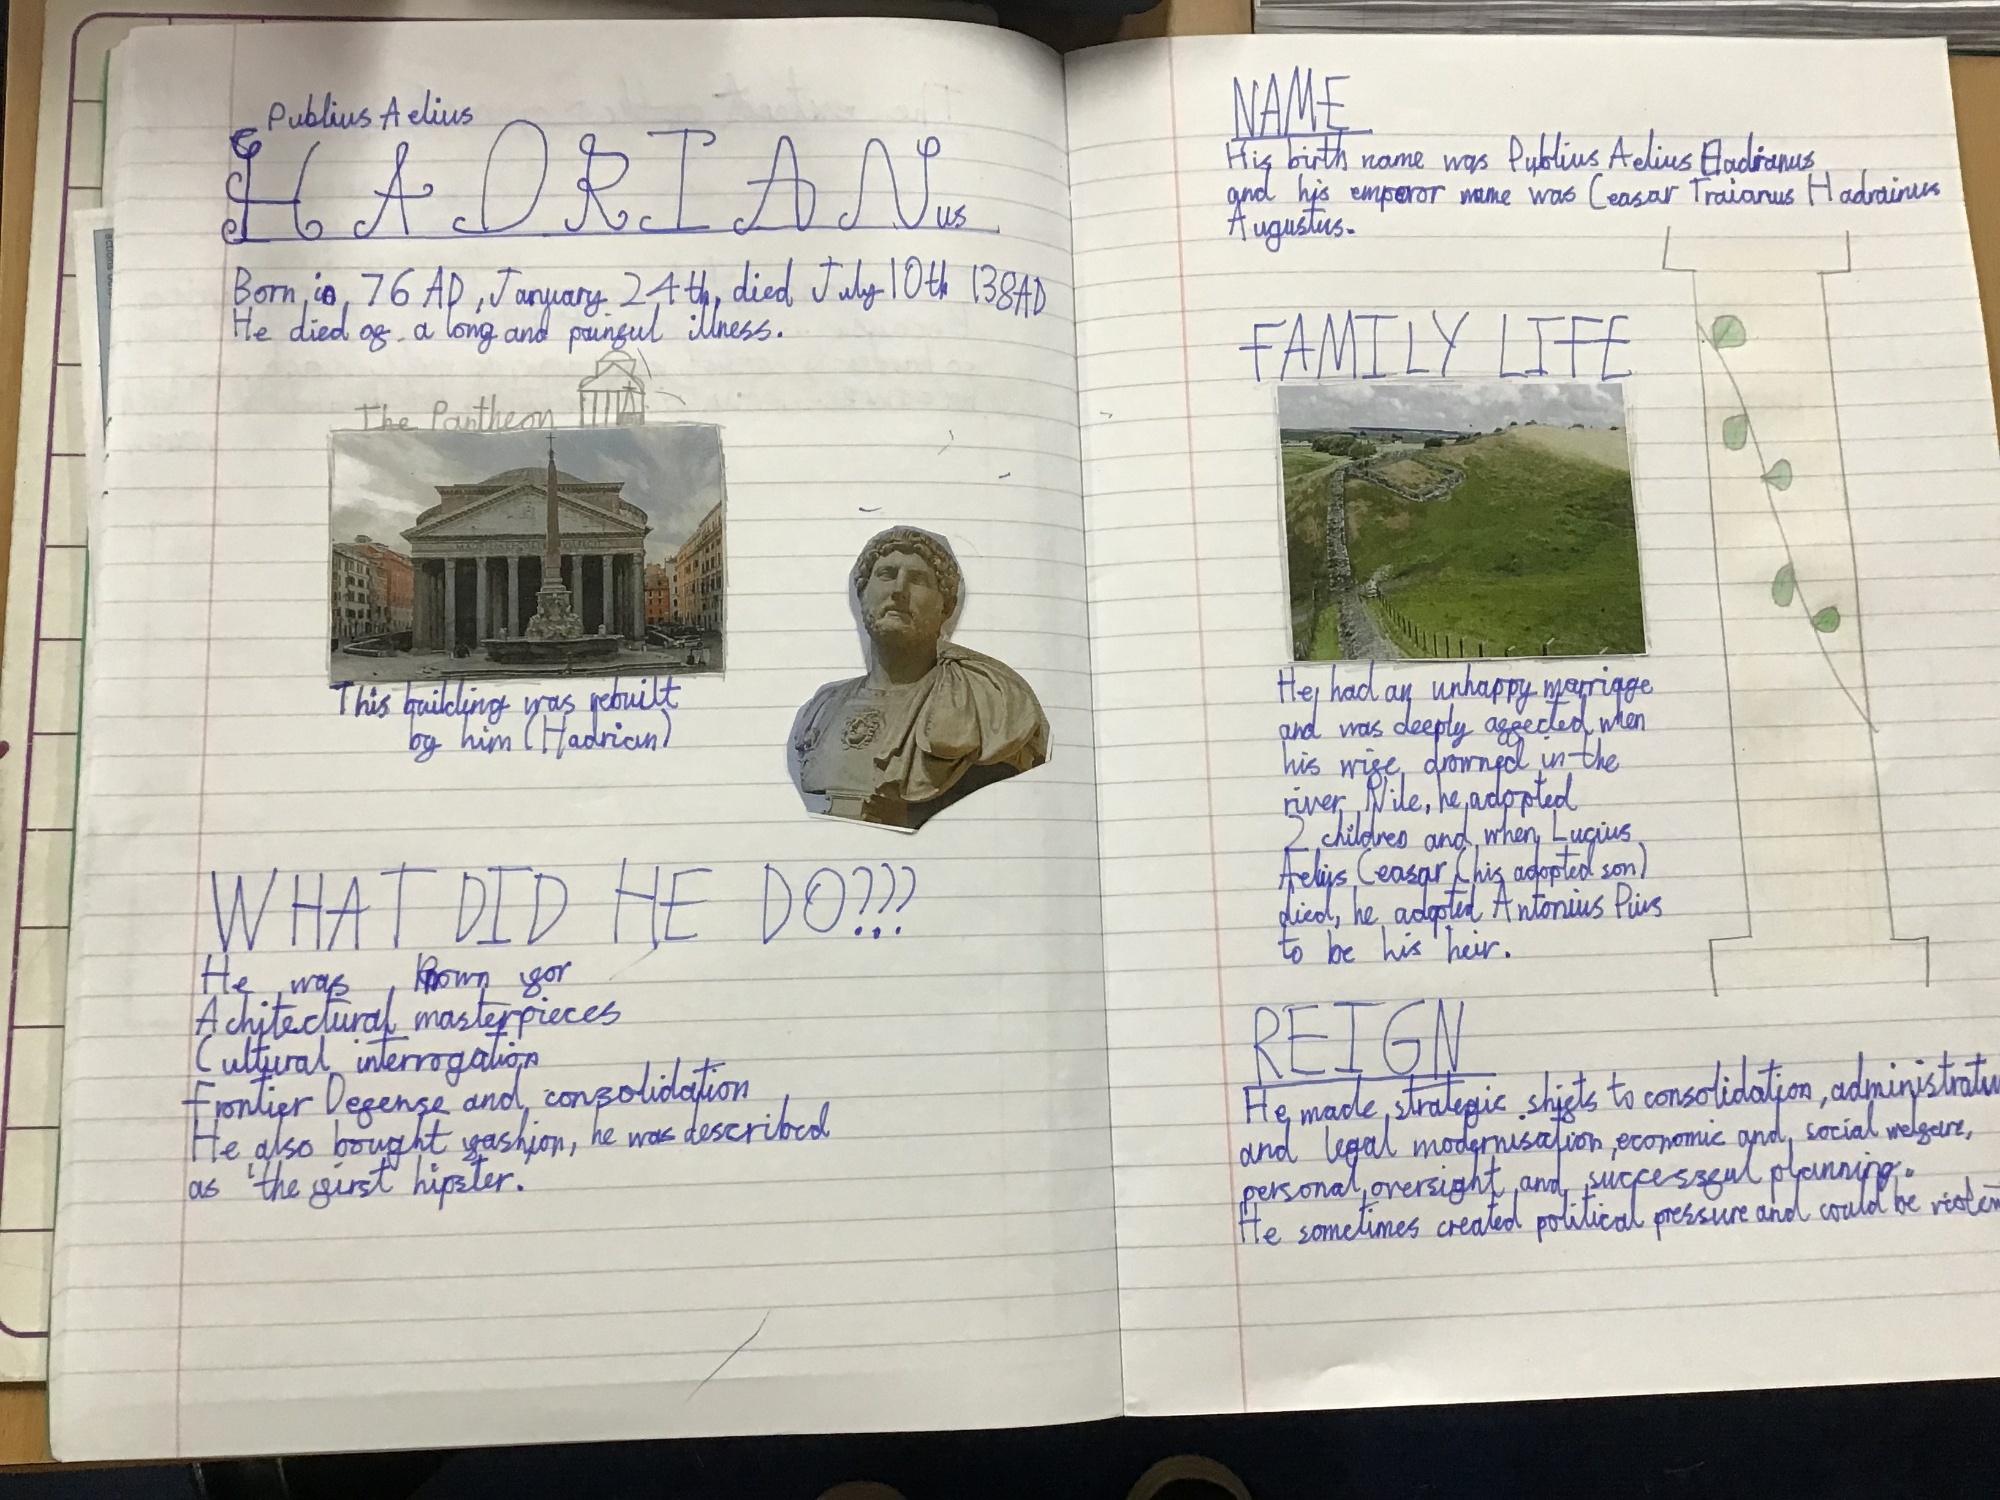 Publius Aelius
HADRIANus
Born in 76 AD, January 24th, died July 10th 138AD
He died of a long and painful illness.
The Pantheon
This building was rebuilt
by him (Hadrian)
WHAT DID HE DO???
He was known for
Achitectural masterpieces
Cultural interrogation
Frontier Defense and consolidation
He also bought fashion, he was described
as 'the first hipster.
NAME
His birth name was Publius Aelius Hadrianus
and his emperor name was Ceasar Traianus Hadrainus
Augustus.
FAMILY LIFE
He had an unhappy marriage
and was deeply affected when
his wife drowned in the
river Nile, he adopted
2 children and when Lucius
Aelius Ceasar (his adopted son)
died, he adopted Antonius Pius
to be his heir.
REIGN
He made strategic shifts to consolidation, administrativ
and legal modernisation, economic and social welfare,
personal oversight and successful planning.
He sometimes created political pressure and could be violen